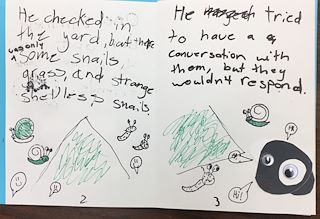 He checked in
the yard, but there
was only
some snails,
grass, and strange
shelless snails.
2
He tried
to have a
conversation with
them, but they
wouldn't respond.
Hi!
3